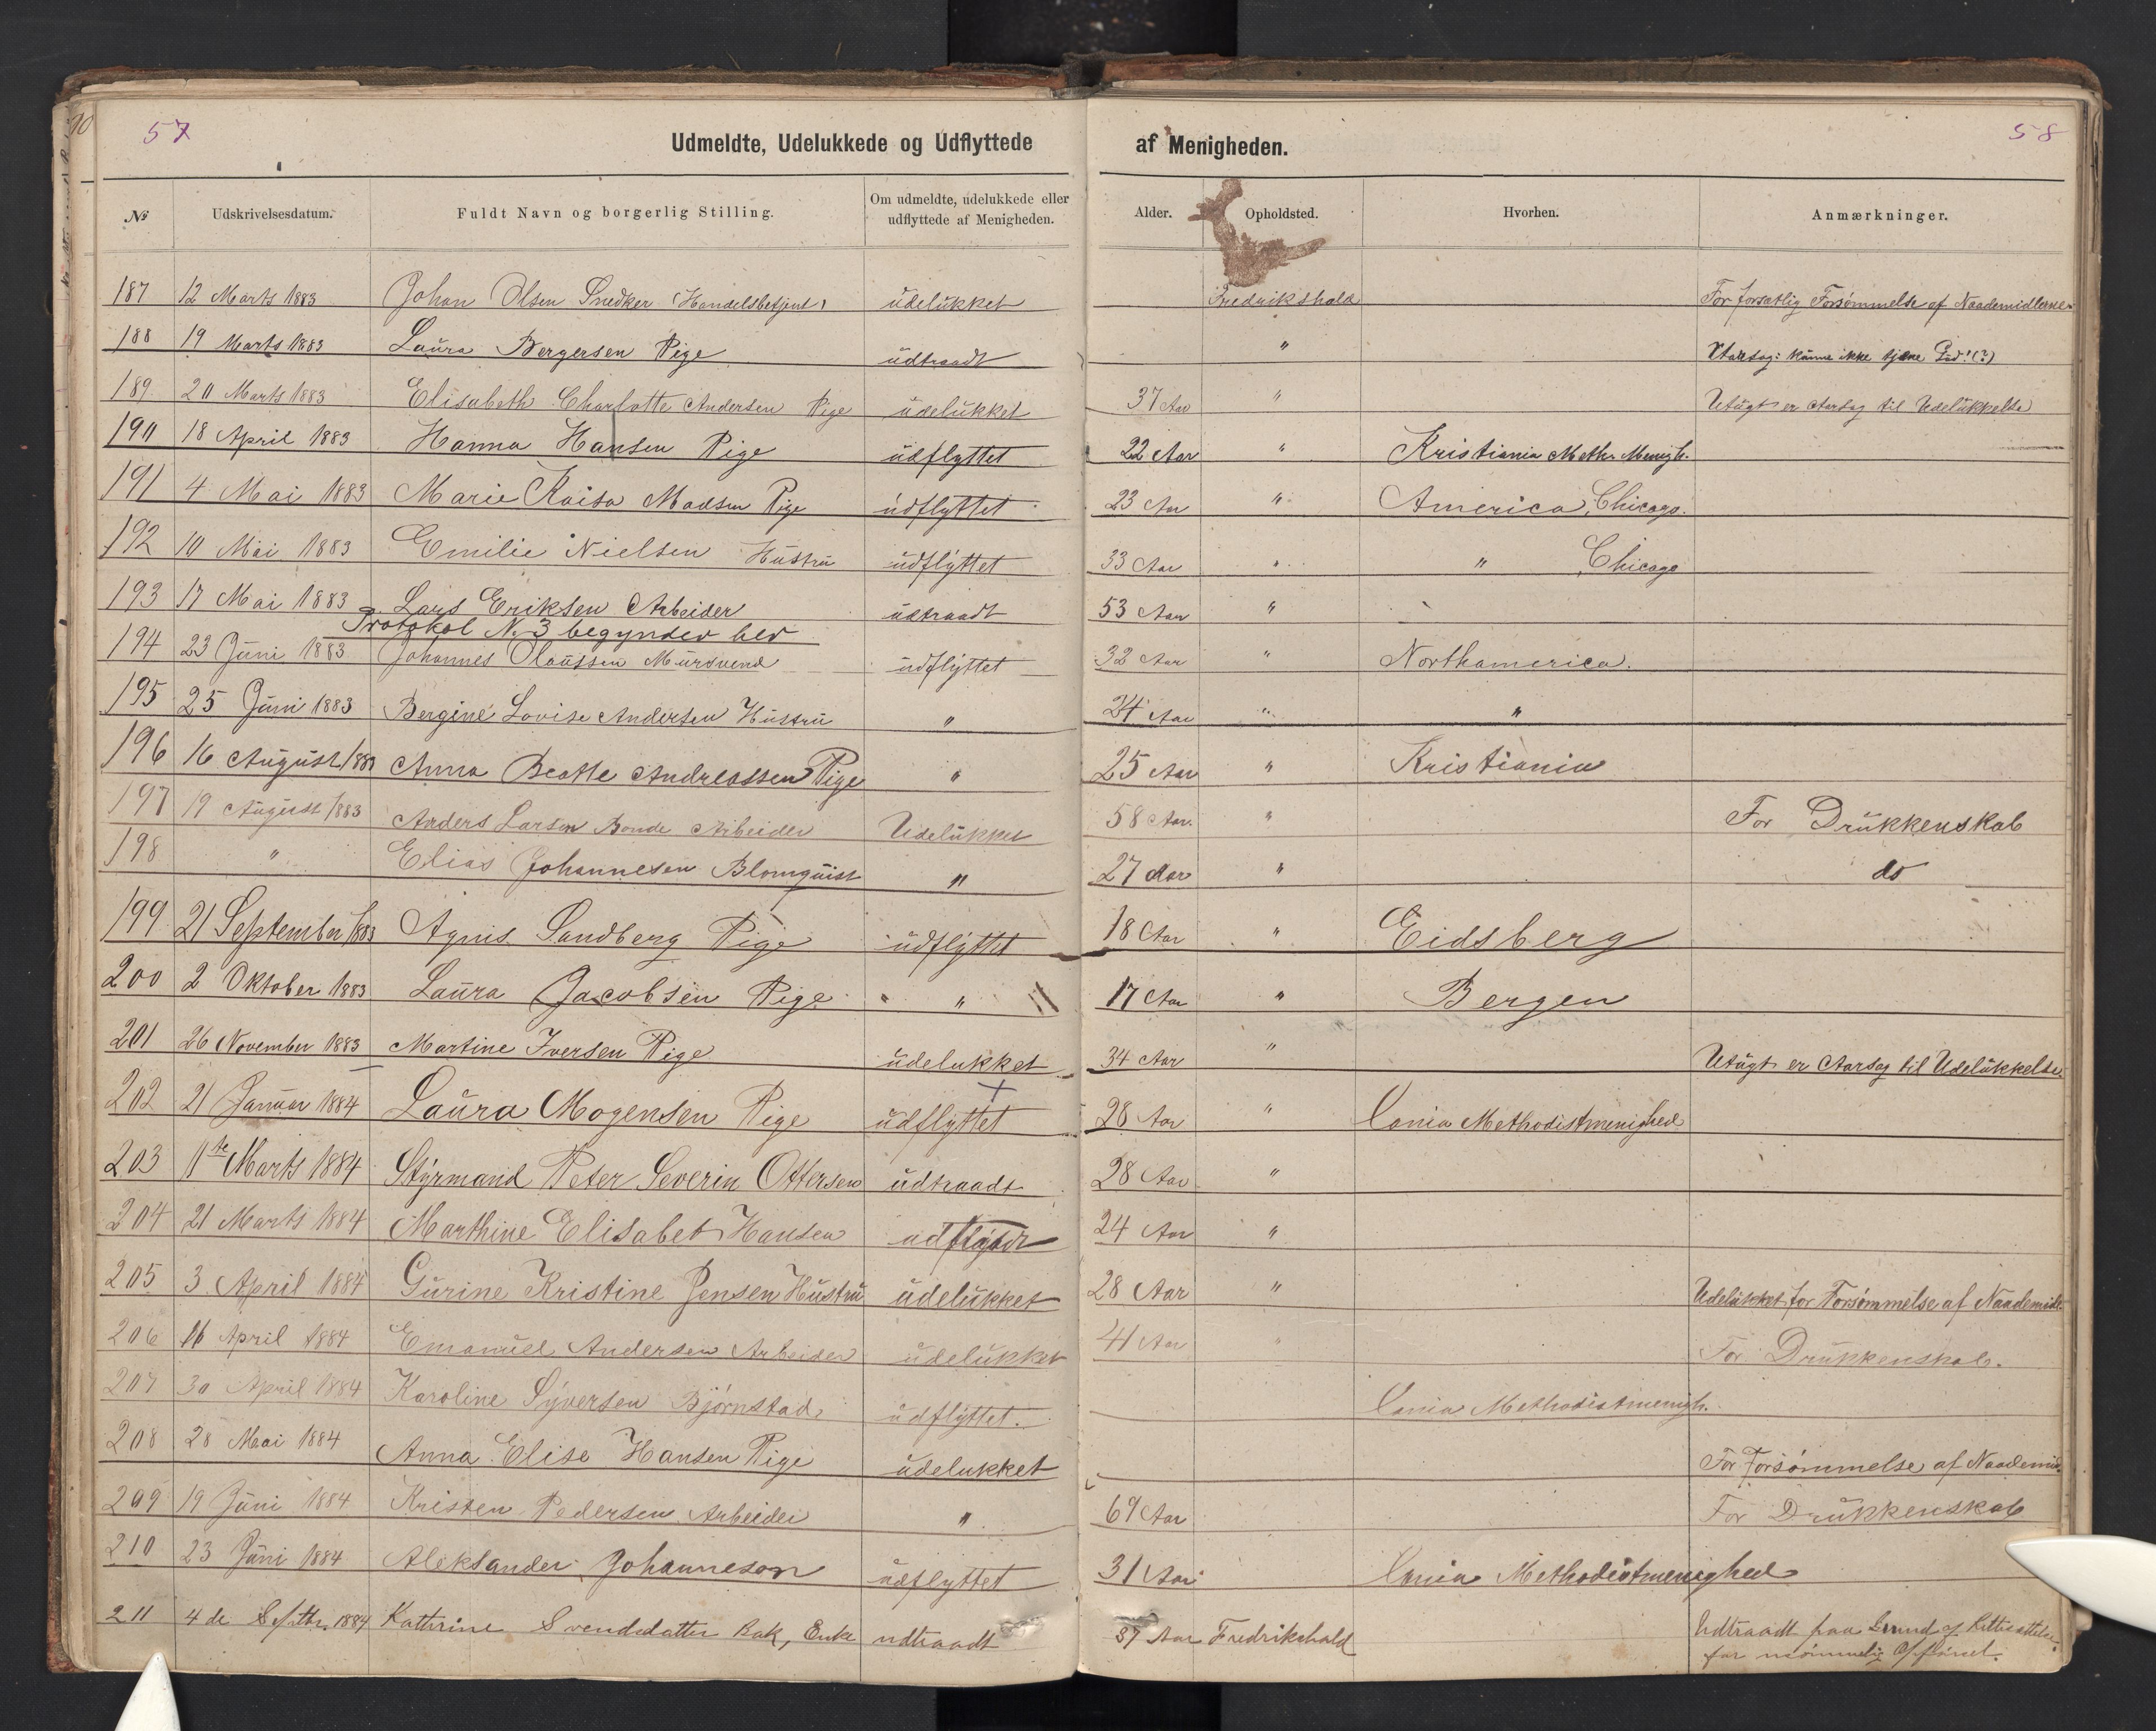 90
57
58
Udmeldte, Udelukkede og Udflyttede af Menigheden.
№ Udskrivelsesdatum. Fuldt Navn og borgerlig Stilling. Om udmeldte, udelukkede eller udflyttede af Menigheden. Alder. Opholdsted. Hvorhen. Anmærkninger.
187 12 Marts 1883 Johan Olsen Snedker (Handelsbetjent) udelukket Fredrikshald For forsætlig Forsømmelse af Naademidlerne
188 19 Marts 1883 Laura Bergersen Pige udtraadt " kunne ikke tjene Gud! (?)
189 20 Marts 1883 Elisabeth Charlotte Andersen Pige udelukket 37 Aar " Utugt er Aarsag til Udelukkelse
190 18 April 1883 Hanna Hansen Pige udflyttet 22 Aar " Kristiania Meth. Menigh.
191 4 Mai 1883 Marie Kaisa Madsen Pige udflyttet 23 Aar " America, Chicago.
192 10 Mai 1883 Emilie Nielsen Hustru udflyttet 33 Aar " " Chicago
193 17 Mai 1883 Lars Eriksen Arbeider udtraadt 53 Aar "
Protokol N. 3 begynder her
194 23 Juni 1883 Johannes Olaussen Mursvend udflyttet 32 Aar " Northamerica.
195 25 Juni 1883 Bergine Lovise Andersen Hustru " 24 Aar " "
196 16 August 1883 Anna Beatte Andreassen Pige " 25 Aar " Kristiania
197 19 August 1883 Anders Larsen Bonde Arbeider Udelukket 58 Aar. " For Drukkenskab
198 " Elias Johannesen Blomquist " 27 Aar " do
199 21 September 1883 Agnis Sandberg Pige udflyttet 18 Aar " Eidsberg
200 2 Oktober 1883 Laura Jacobsen Pige " " 17 Aar " Bergen
201 26 November 1883 Martine Iversen Pige udelukket 34 Aar " Utugt er Aarsag til Udelukkelse.
202 21 Januar 1884 Laura Mogensen Pige udflyttet 28 Aar " Xania Methodistmenighed
203 11te Marts 1884 Styrmand Peter Severin Ottersen udtraadt 28 Aar "
204 21 Marts 1884 Marthine Elisabet Hansen 24 Aar "
205 3 April 1884 Gurine Kristine Jensen Hustru udelukket 28 Aar " Udelukket for Forsømmelse af Naademidl.
206 16 April 1884 Emanuel Andersen Arbeider udelukket 41 Aar " For Drukkenskab.
207 30 April 1884 Karoline Syversen Bjørnstad. udflyttet. Xania Methodistmenigh.
208 28 Mai 1884 Anna Elise Hansen Pige udelukket For Forsømmelse af Naademid.
209 19 Juni 1884 Kristen Pedersen Arbeider " 69 Aar For Drukkenskab
210 23 Juni 1884 Aleksander Johanneson udflyttet 31 Aar Xania Methodistmenighed
211 4 de Septbr. 1884 Kathrine Svendsdatter Bak, Enke udtraadt 57 Aar Fredrikshald Udtraadt paa Grund af
for usømmelig